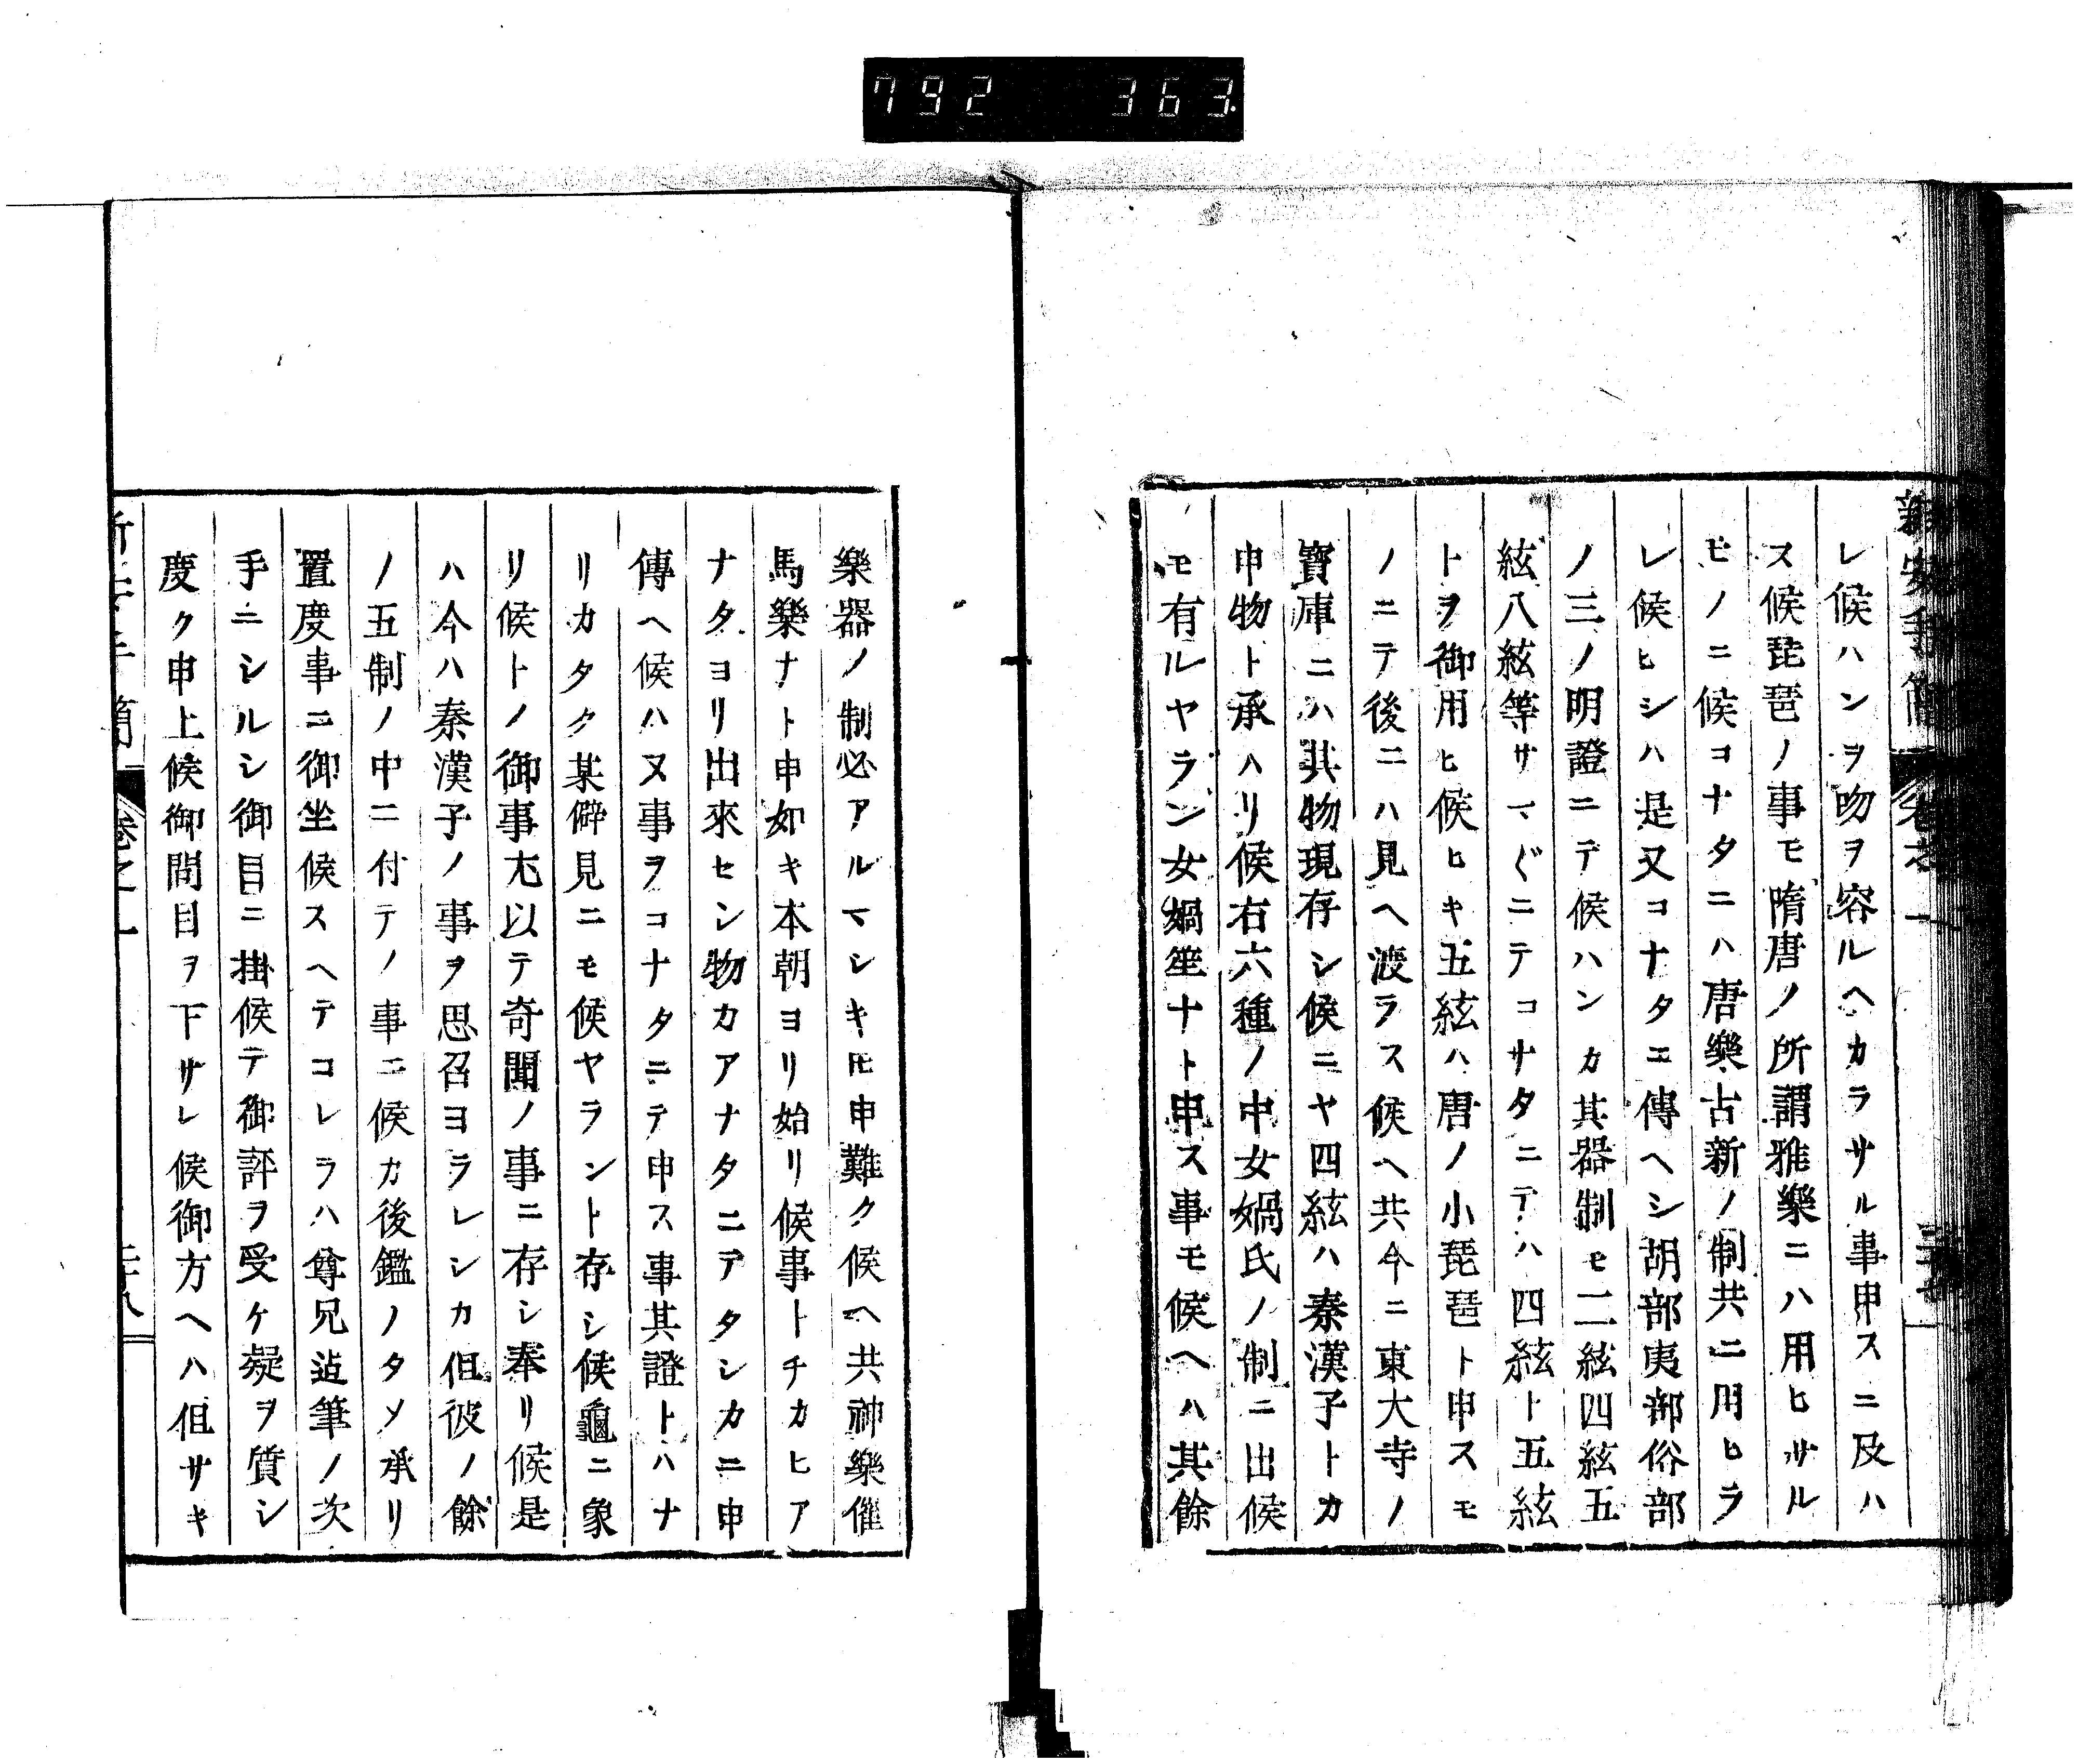 792 363
新安手簡 卷之一
レ候ハンヲ吻ヲ容ルヘカラサル事申スニ及ハ
ス候琵琶ノ事モ隋唐ノ所謂雅樂ニハ用ヒサル
モノニ候コナタニハ唐樂古新ノ制共ニ用ヒラ
レ候ヒシハ是又コナタエ傳ヘシ胡部夷部俗部
ノ三ノ明證ニテ候ハンカ其器制モ二絃四絃五
絃八絃等サマ〲ニテコサタニテハ四絃ト五絃
トヲ御用ヒ候ヒキ五絃ハ唐ノ小琵琶ト申スモ
ノニテ後ニハ見ヘ渡ラス候ヘ共今ニ東大寺ノ
寶庫ニハ其物現存シ候ニヤ四絃ハ秦漢子トカ
申物ト承ハリ候右六種ノ中女媧氏ノ制ニ出候
モ有ルヤラン女媧笙ナト申ス事モ候ヘハ其餘
樂器ノ制必アルマシキヒ申難ク候ヘ共神樂催
馬樂ナト申如キ本朝ヨリ始リ候事トチカヒア
ナタヨリ出來セシ物カアナタニテタシカニ申
傳ヘ候ハヌ事ヲコナタニテ申ス事其證トハナ
リカタク某僻見ニモ候ヤラント存シ候龜ニ象
リ候トノ御事尤以テ奇聞ノ事ニ存シ奉リ候是
ハ今ハ秦漢子ノ事ヲ思召ヨラレシカ但彼ノ餘
ノ五制ノ中ニ付テノ事ニ候カ後鑑ノタメ承リ
置度事ニ御坐候スヘテコレラハ尊兄造筆ノ次
手ニシルシ御目ニ掛候テ御評ヲ受ケ疑ヲ質シ
度ク申上候御問目ヲ下サレ候御方ヘハ但サキ
卷之一